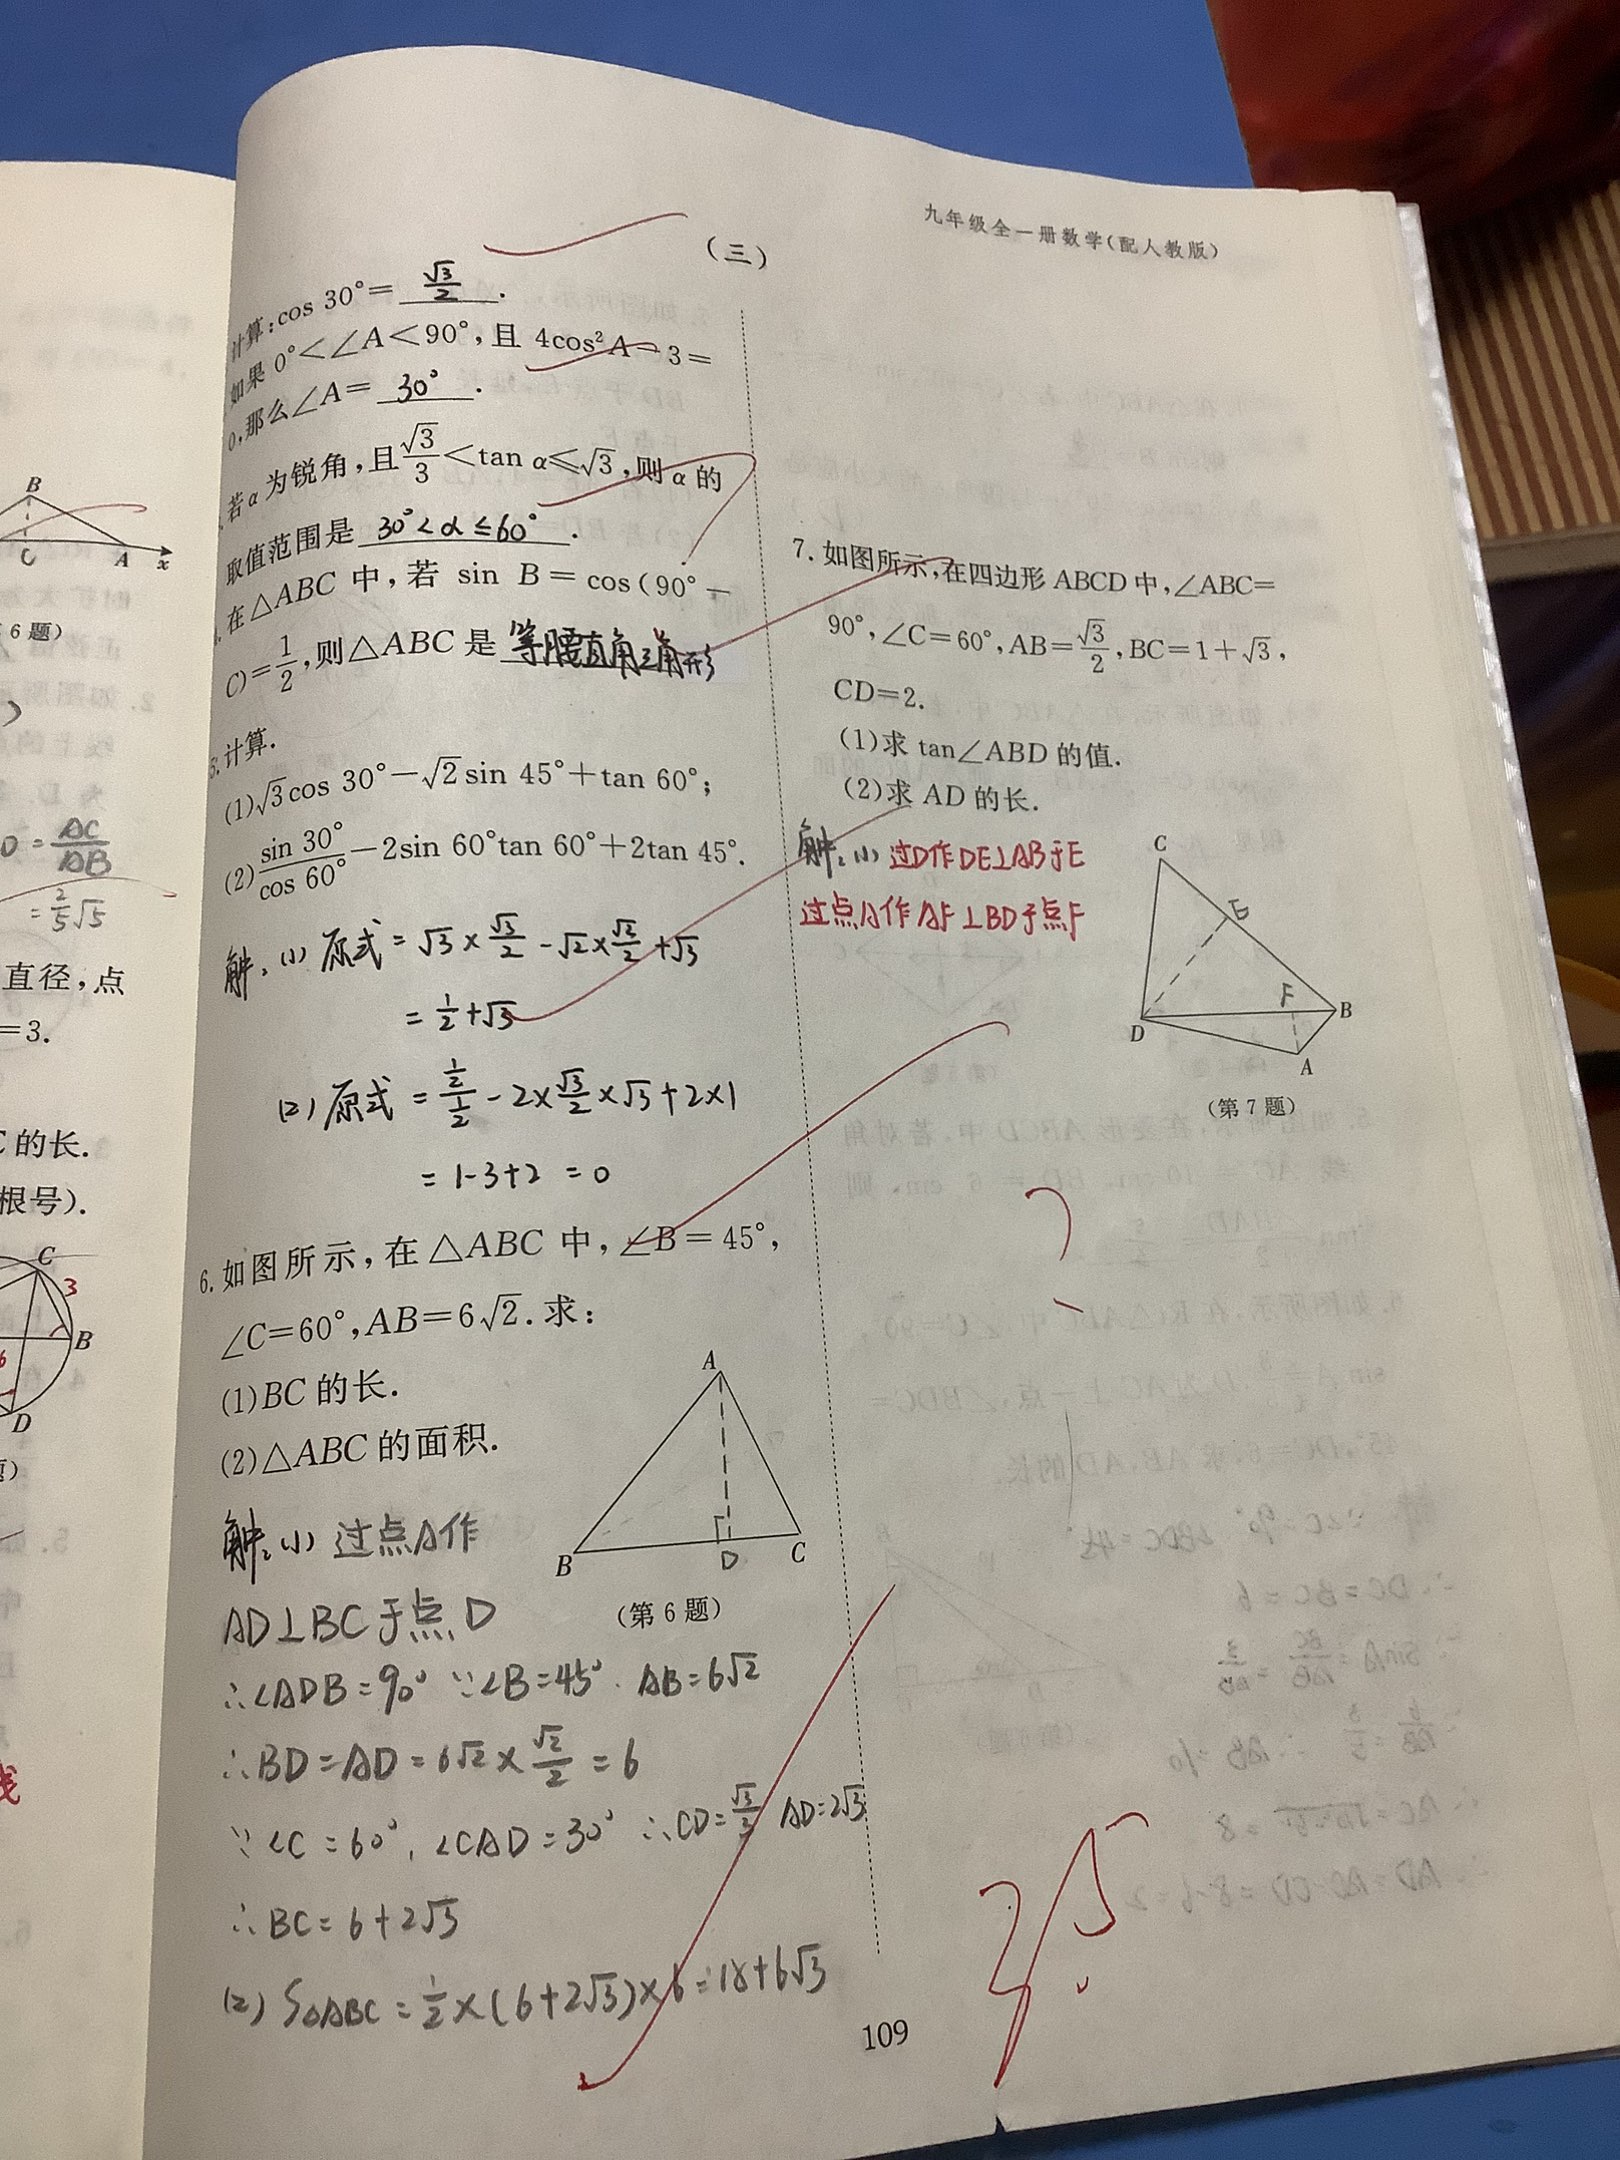 九年级全一册数学(配人教版)
(三)
计算:cos 30°= √3/2 .
如果 0°<∠A<90°,且 4cos²A-3=
0,那么∠A= 30° .
若α为锐角,且√3/3<tan α≤√3,则α的
取值范围是 30°<α≤60° .
在△ABC 中,若 sin B=cos(90°-
C)=1/2,则△ABC 是 等腰直角三角形
计算.
(1)√3cos 30°-√2sin 45°+tan 60°;
(2)sin 30°/cos 60°-2sin 60°tan 60°+2tan 45°.
解:(1)原式=√3×√3/2-√2×√2/2+√3
=1/2+√3
(2)原式=1/2/1/2-2×√3/2×√3+2×1
=1-3+2 =0
6.如图所示,在△ABC 中,∠B=45°,
∠C=60°,AB=6√2.求:
(1)BC 的长.
(2)△ABC 的面积.
A
B
D
C
(第 6 题)
解:(1)过点A作
AD⊥BC于点D
∴∠ADB=90° ∵∠B=45°. AB=6√2
∴BD=AD=6√2×√2/2=6
∵∠C=60°,∠CAD=30° ∴CD=√3/3 AD=2√3
∴BC=6+2√3
(2)S△ABC=1/2×(6+2√3)×6=18+6√3
7.如图所示,在四边形 ABCD 中,∠ABC=
90°,∠C=60°,AB=√3/2,BC=1+√3,
CD=2.
(1)求 tan∠ABD 的值.
(2)求 AD 的长.
解:(1)过D作DE⊥AB于E
过点A作AF⊥BD于点F
C
E
F
B
D
A
(第 7 题)
109
B
C
A
x
6 题)
=AC/AB
=2/5√5
直径,点
=3.
的长.
根号).
C
3
B
D